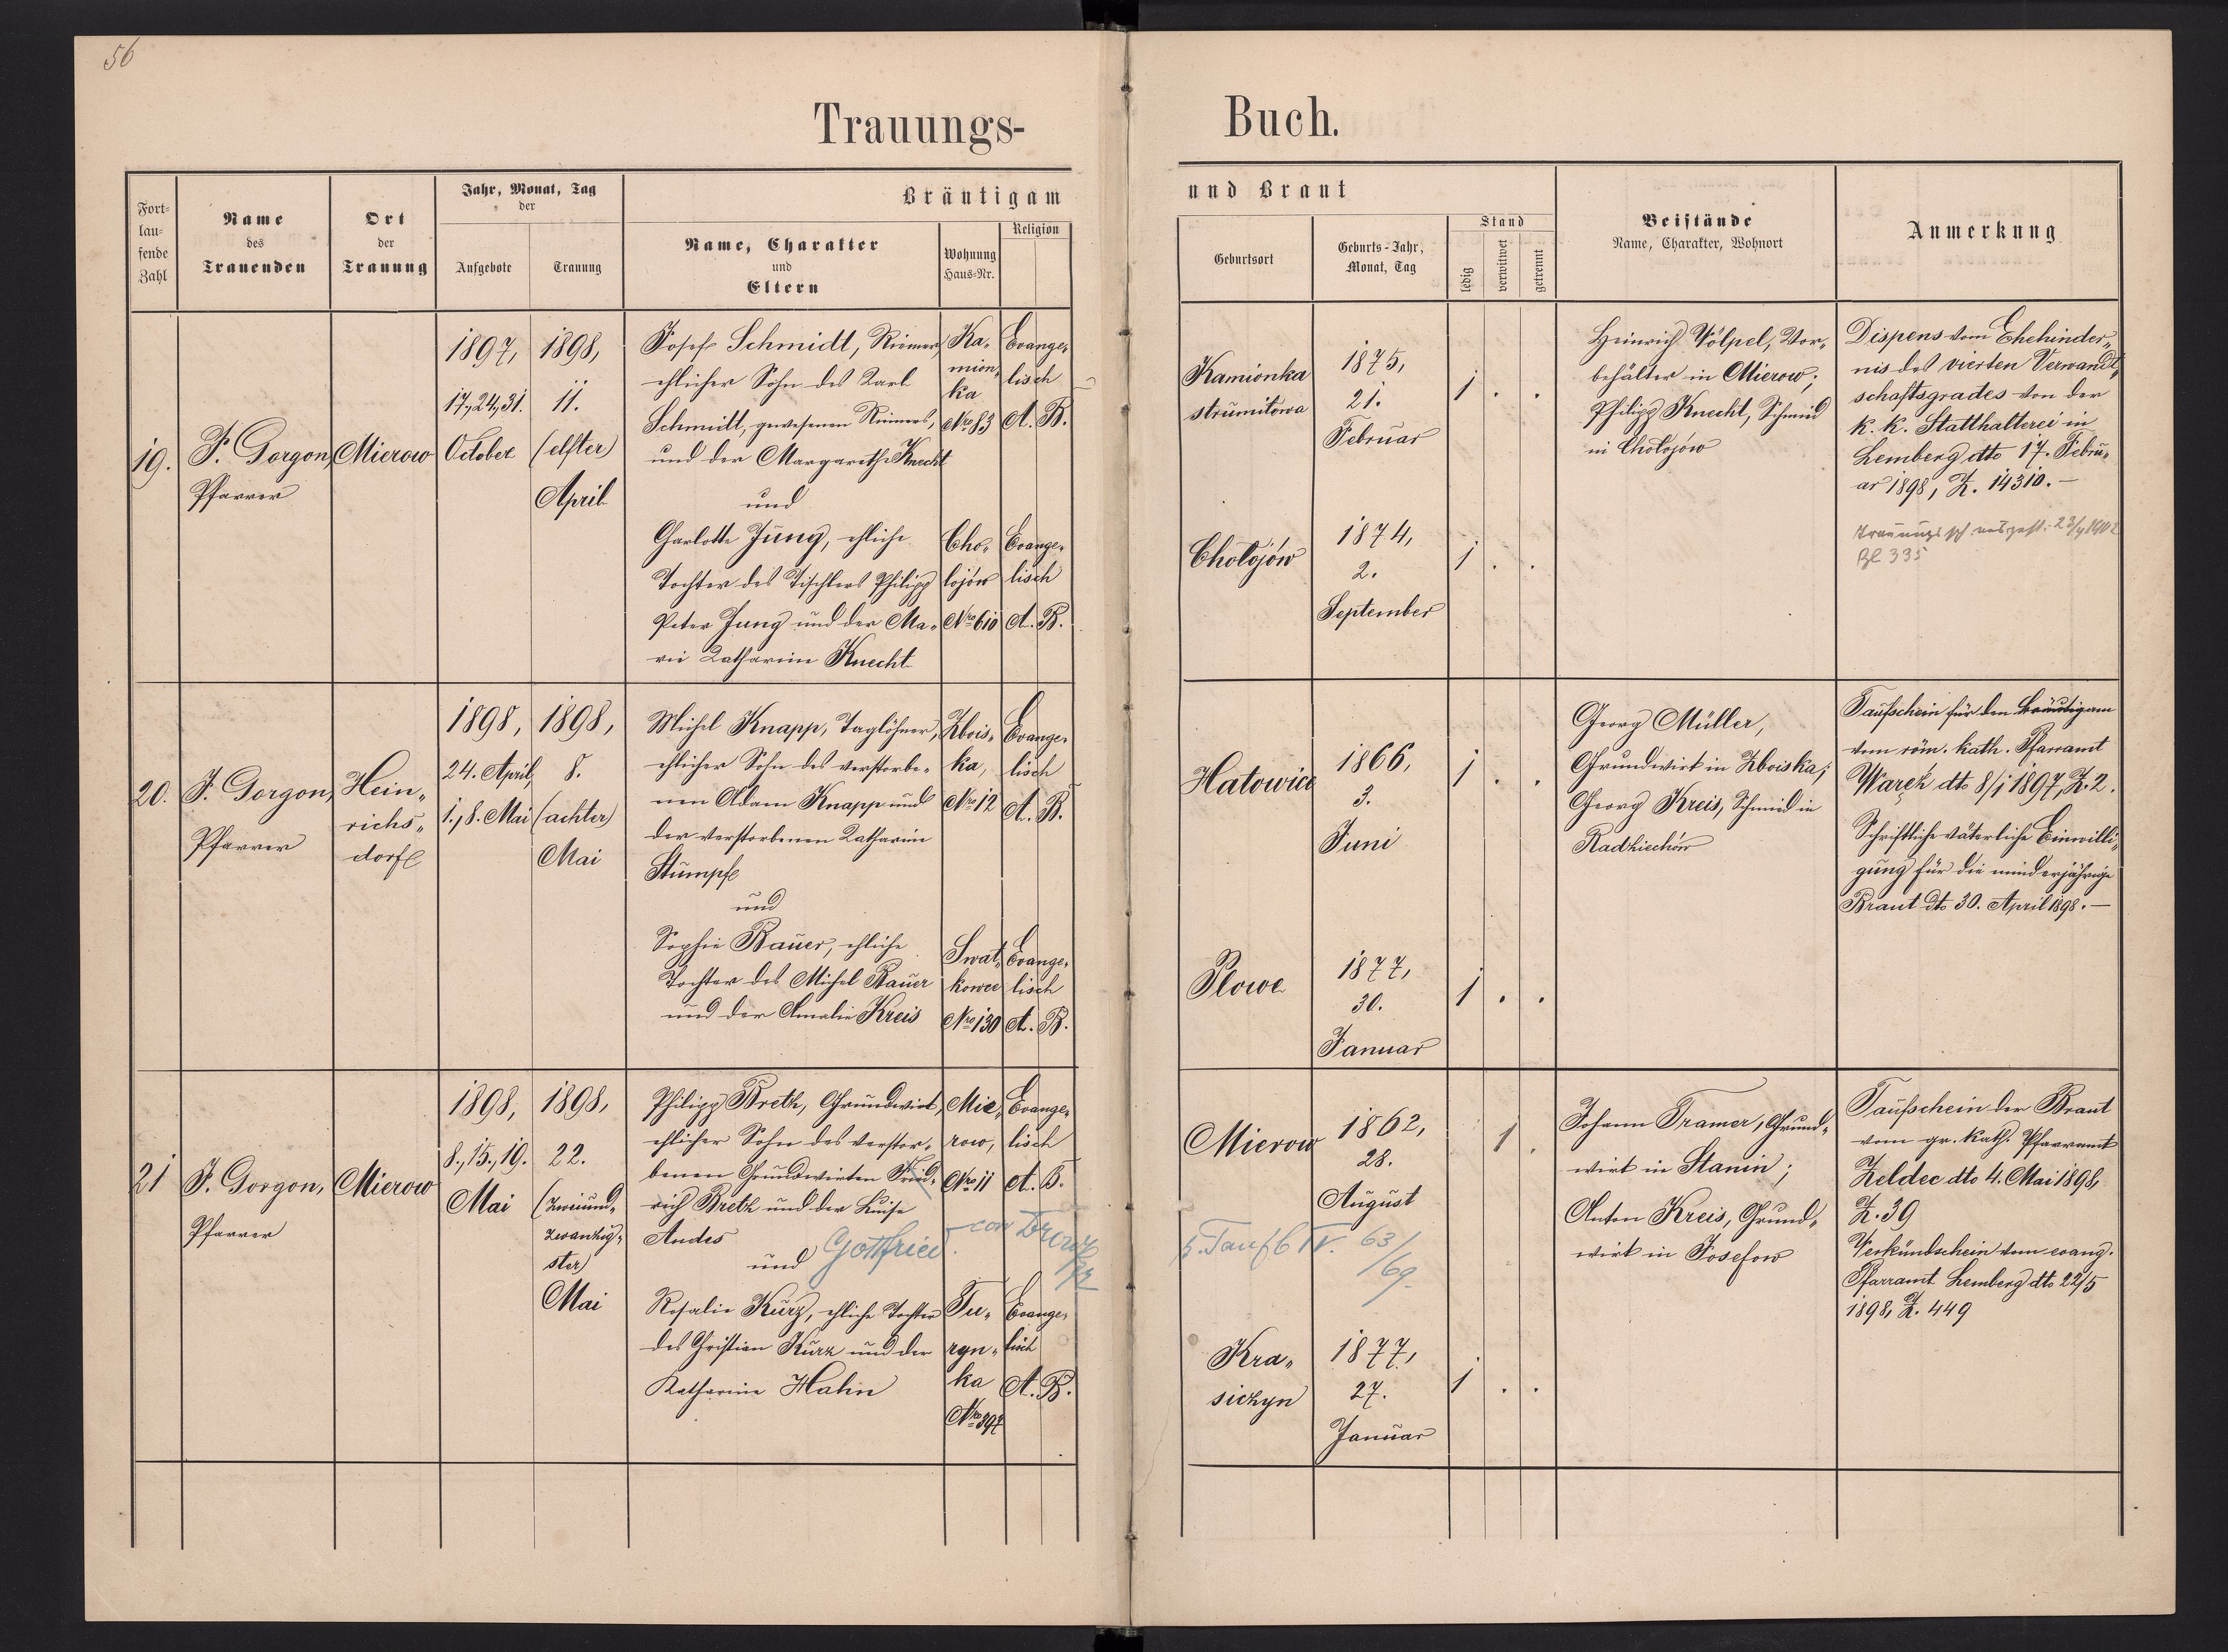 56
Trauungs-
Buch.
Fort-
lau-
fende
Zahl
Name
des
Trauenden
Ort
der
Trauung
Jahr, Monat, Tag
der
Aufgebote
Trauung
Bräutigam
Name, Charakter
und
Eltern
Wohnung
Haus-Nr.
Religion
und Braut
Geburtsort
Geburts-Jahr,
Monat, Tag
Stand
ledig
verwitwet
getrennt
Beistände
Name, Charakter, Wohnort
Anmerkung
19.
F. Gorgon,
Pfarrer
Mierow
1897,
17., 24., 31.
October
1898,
11.
(elfter)
April
Josef Schmidt, Riemer,
ehlicher Sohn des Karl
Schmidt, gewesenen Riemers,
und der Margarethe Knecht
und
Charlotte Jung, ehliche
Tochter des Tischlers Philipp
Peter Jung und der Ma-
rie Katharine Knecht
Ka-
mion-
ka
Nro 83
Evange-
lisch
A. B.
Cho-
lojów
Nro 610
Evange-
lisch
A. B.
Kamionka
strumiłowa
1875,
21.
Februar
1 . .
Chołojów
1874,
2.
September
1 . .
Heinrich Völpel, Vor-
behälter in Mierow;
Philipp Knecht, Schmied
in Chołojów
Dispens vom Ehehinder-
nis des vierten Verwandt-
schaftsgrades von der
k. k. Statthalterei in
Lemberg dto 17. Febru-
ar 1898, Z. 14310. —
Trauungssch. ausgest. 23/4 1902
Zl 335
20.
F. Gorgon,
Pfarrer
Hein-
richs-
dorf
1898,
24. April,
1., 8. Mai
1898,
8.
(achter)
Mai
Michel Knapp, Taglöhner,
ehlicher Sohn des verstorbe-
nen Adam Knapp und
der verstorbenen Katharine
Stumpf
und
Sophie Bauer, ehliche
Tochter des Michel Bauer
und der Amalie Kreis
Zbois-
ka,
Nro 12
Evange-
lisch
A. B.
Swat-
kower
Nro 130
Evange-
lisch
A. B.
Hatowice
1866,
3.
Juni
1 . .
Plowe
1877,
30.
Januar
1 . .
Georg Müller,
Grundwirt in Zboiska;
Georg Kreis, Schmied in
Radziechów
Taufschein für den Bräutigam
vom röm. kath. Pfarramt
Waręk dto 8/1 1897, Z. 2.
Schriftliche väterliche Einwilli-
gung für die minderjährige
Braut dto 30. April 1898. —
21
F. Gorgon,
Pfarrer
Mierow
1898,
8., 15., 19.
Mai
1898,
22.
(zweiund-
zwanzig-
ster)
Mai
Philipp Breth, Grundwirt,
ehlicher Sohn des verstor-
benen Grundwirten Fried-
rich Breth und der Luise
Andes
und Gottfried
Rosalie Kurz, ehliche Tochter
des Christian Kurz und der
Katharine Hahn
Mie-
row,
Nro 11
Evange-
lisch
A. B.
Tu-
ryn-
ka
Nro 397
Evange-
lisch
A. B.
Mierow
1862,
28.
August
1 .
s. Taufb IV. 63/
/69
Kra-
siczyn
1877,
27.
Januar
1 . .
Johann Tramer, Grund-
wirt in Stanin;
Anton Kreis, Grund-
wirt in Josefow
Taufschein der Braut
vom gr. kath. Pfarramt
Zeldec dto 4. Mai 1898,
Z. 39
Verkündschein vom evang.
Pfarramt Lemberg dto 22/5
1898, Z. 449